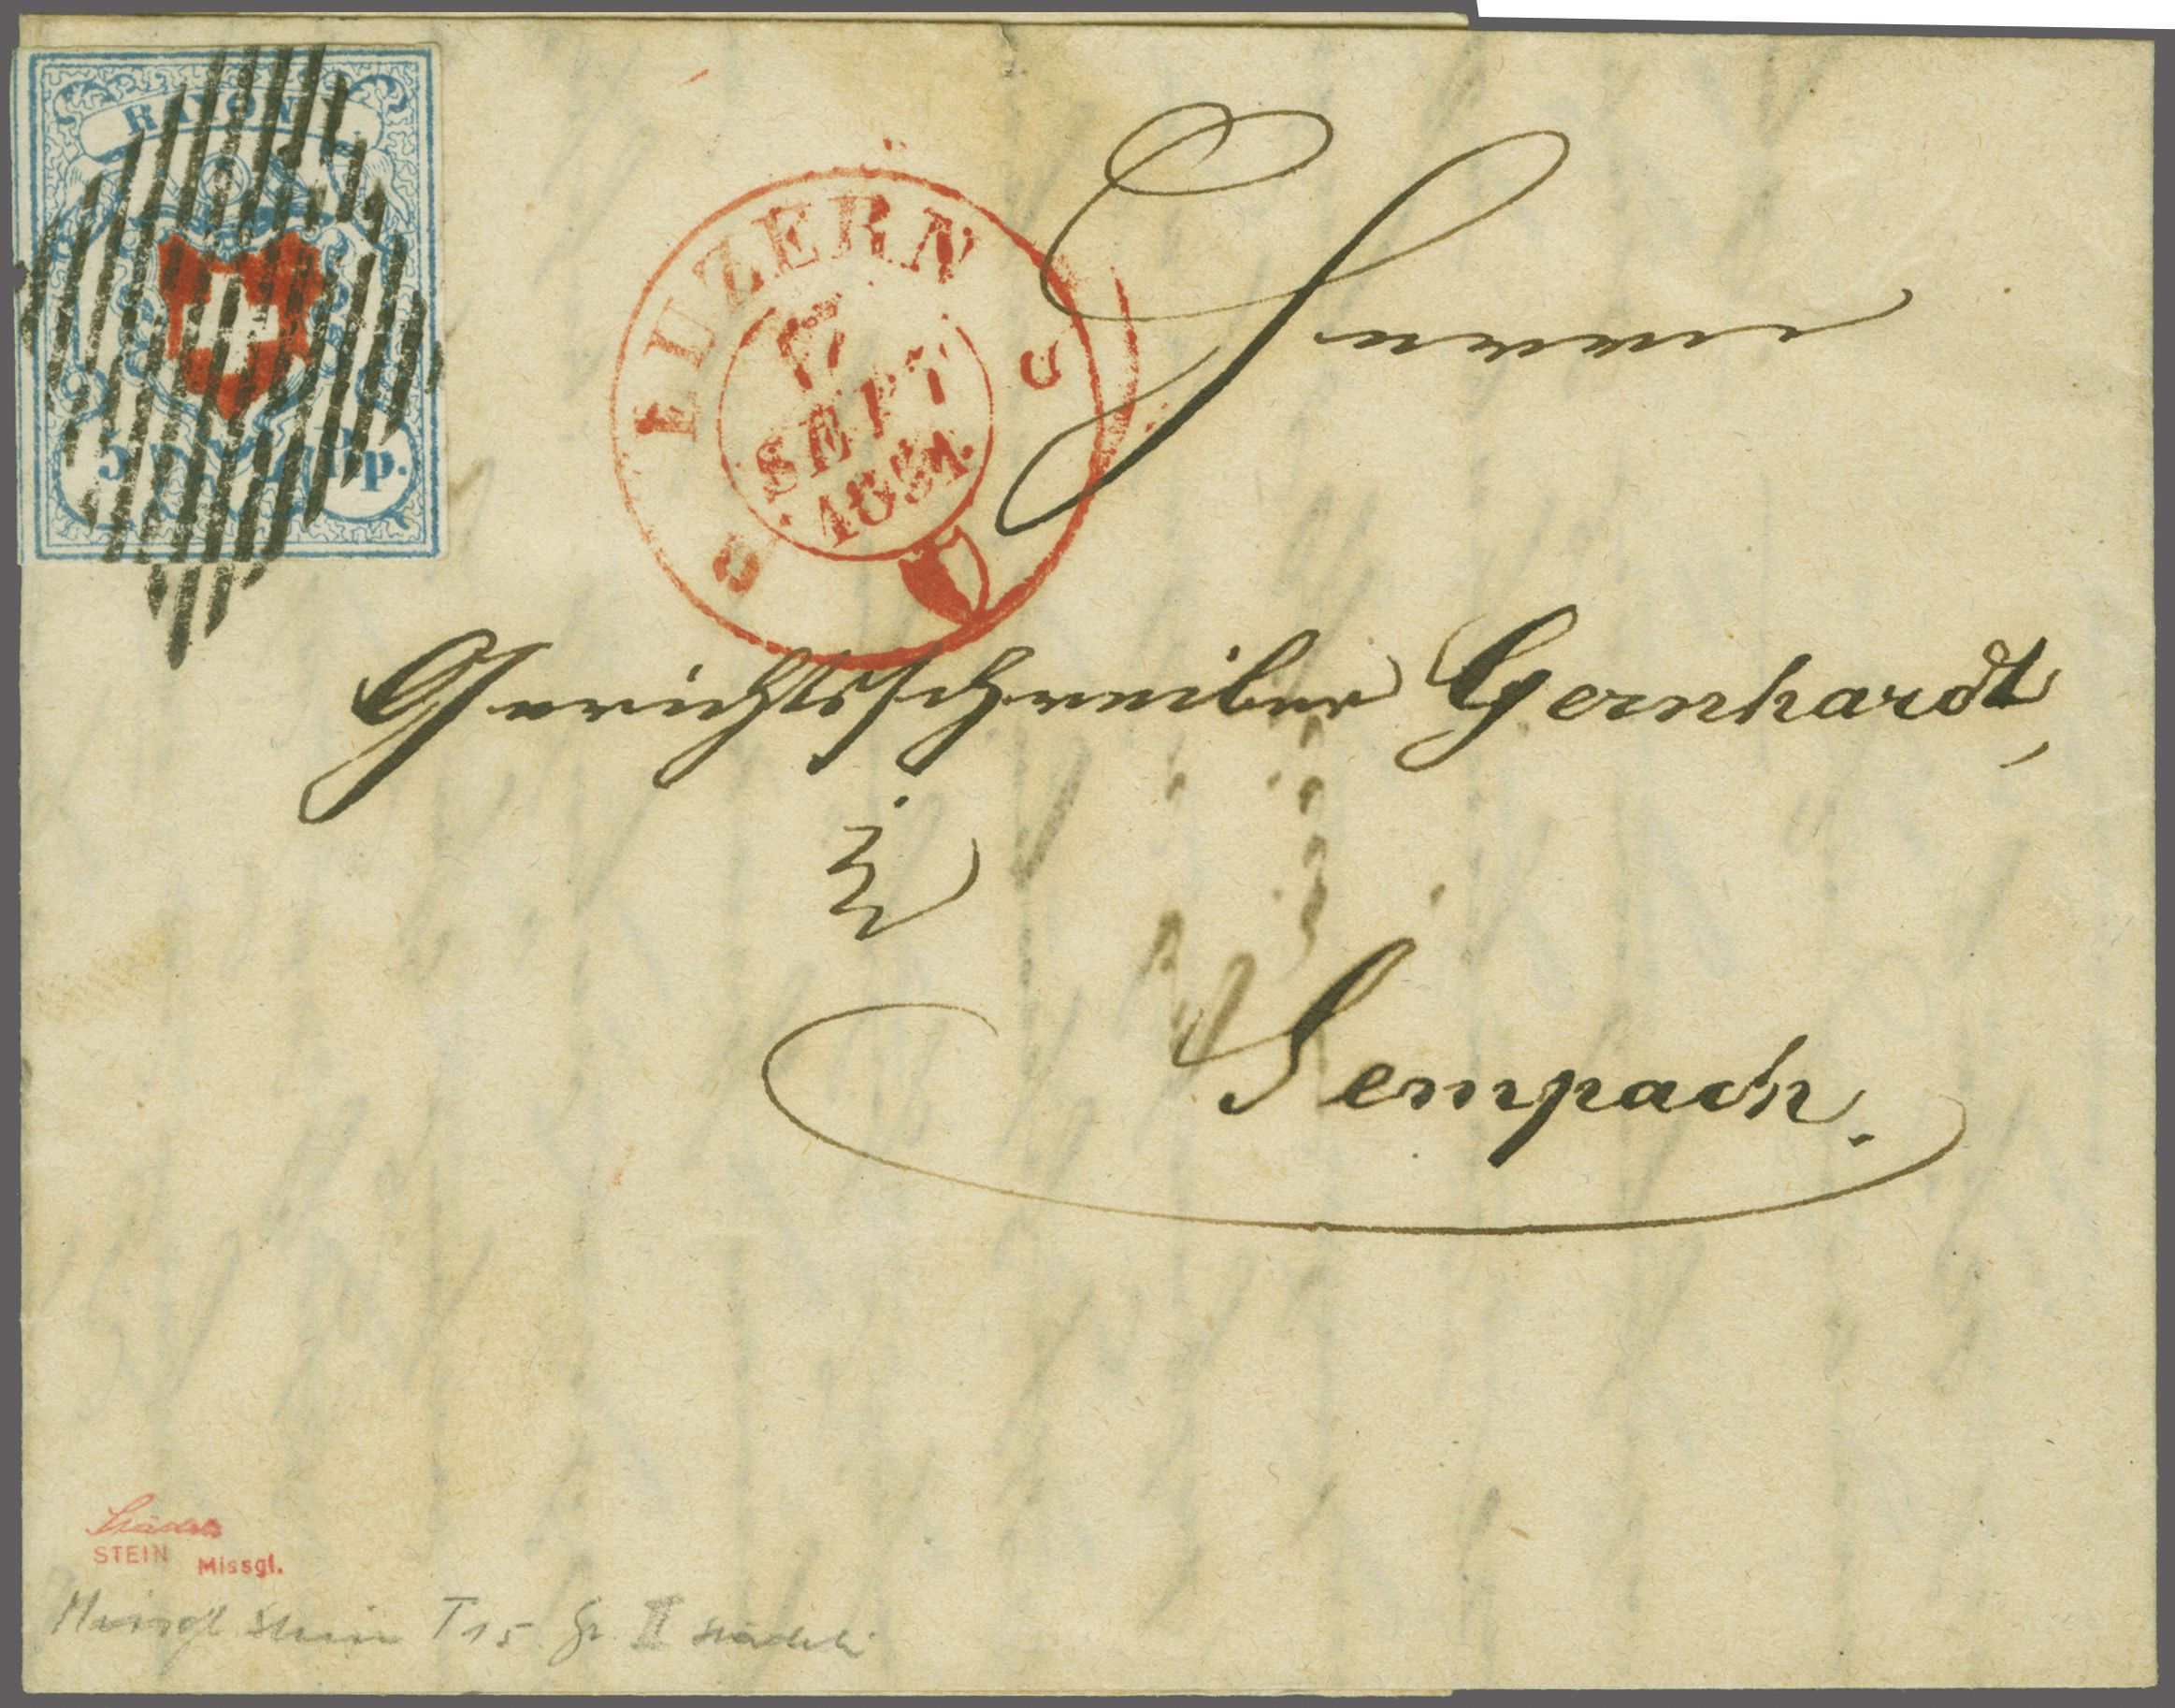 RAYON I.
5 Rp.
LUZERN
17
SEPT
1851
Herrn
Gerichtsschreiber Gernhardt,
in
Sempach.
STEIN Missgl.
T 15 Gr. II